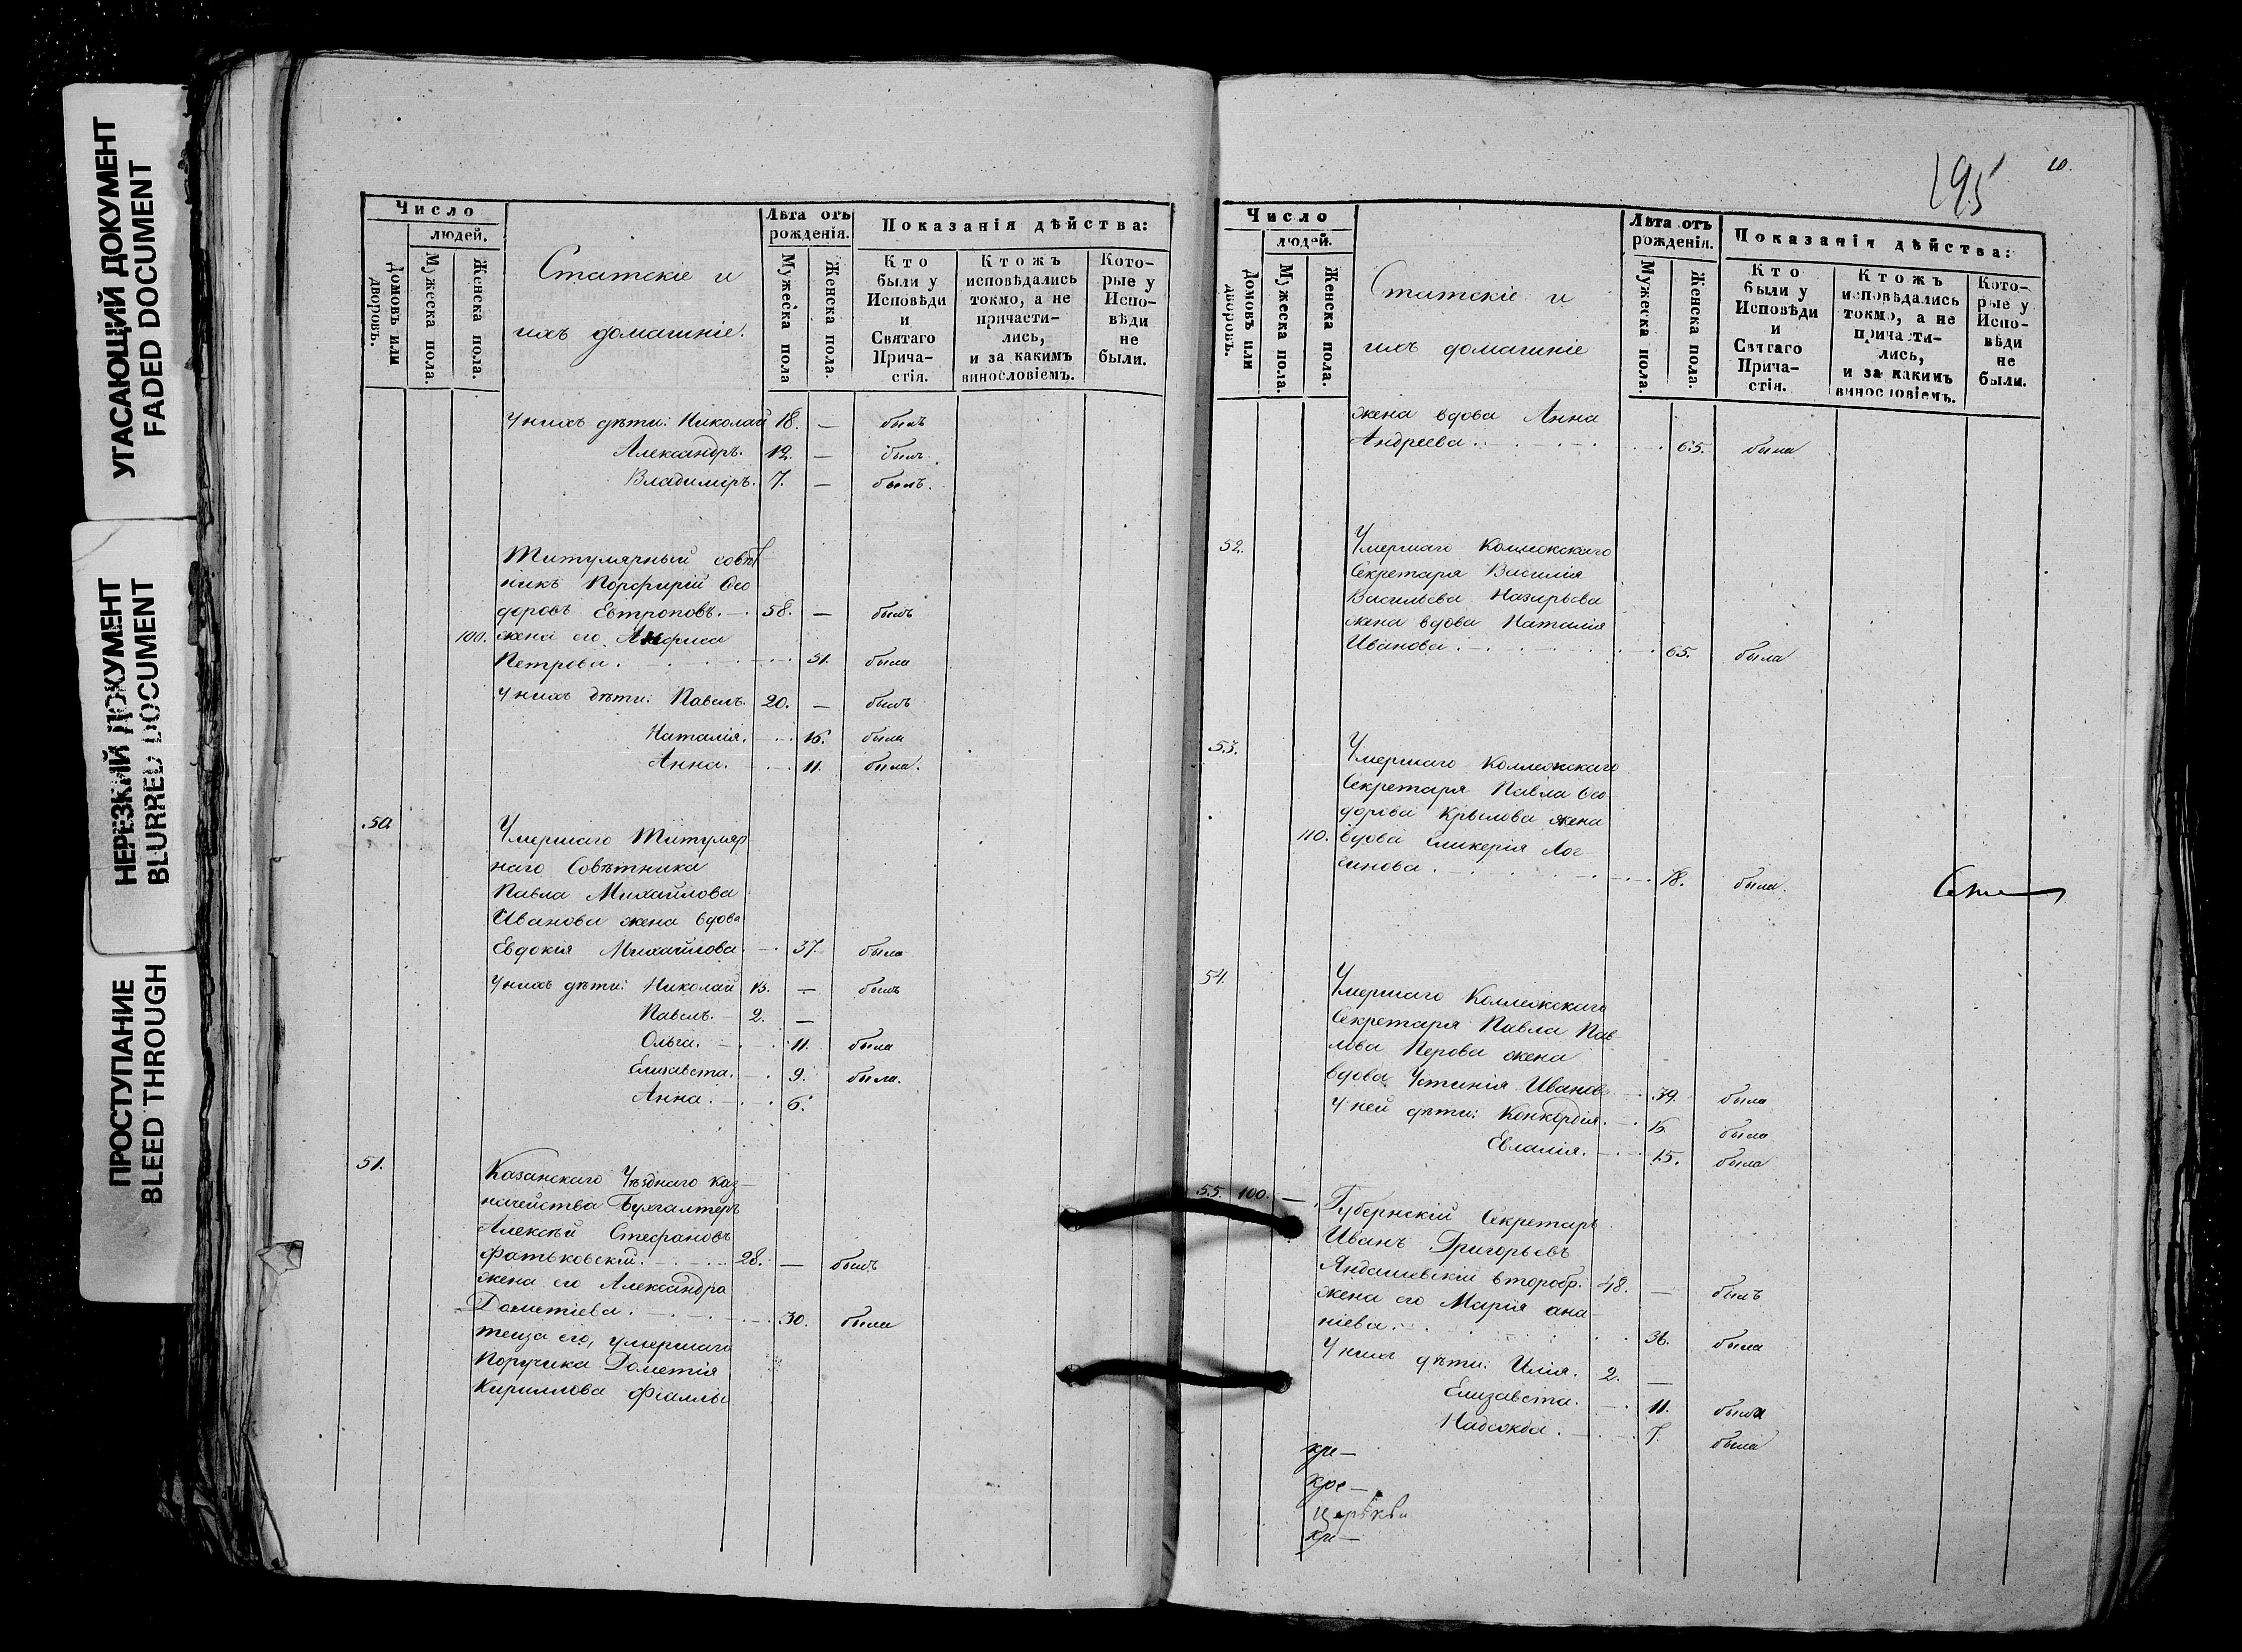 УГАСАЮЩИЙ ДОКУМЕНТ
FADED DOCUMENT
НЕРЕЗКИЙ ДОКУМЕНТ
BLURRED DOCUMENT
ПРОСТУПАНИЕ
BLEED THROUGH
Число
людей.
Домовъ или дворовъ.
Мужеска пола.
Женска пола.
Статскіе и
ихъ домашніе.
Лѣта отъ рожденія.
Мужеска пола
Женска пола.
Показанія дѣйства:
Кто были у Исповѣди и Святаго Прича-стія.
Ктожъ исповѣдались токмо, а не причасти-лись, и за какимъ винословіемъ.
Кото-рые у Испо-вѣди не были.
У нихъ дѣти: Николай 18. — былъ
Александръ. 12. — былъ
Владиміръ. 7. — былъ.
Титулярный совѣт
никъ Порфирій Ѳео
доровъ Евтроповъ. 58. — былъ
100. жена его Анфиса
Петрова. 51. была
У нихъ дѣти: Павелъ. 20. — былъ
Наталія. 16. была
Анна. 11. была.
50. Умершаго Титуляр
наго Совѣтника
Павла Михайлова
Иванова жена вдова
Евдокія Михайлова 37. была
У нихъ дѣти: Николай 13. — былъ
Павелъ. 2. —
Ольга. 11. была
Елизавета. 9. была.
Анна. 6.
51. Казанскаго Уѣзднаго Каз-
начейства Бухгалтеръ
Алексѣй Стефановъ
Фатьковскій. 28. — былъ
жена его Александра
Дометіева. 30. была
теща его, умершаго
Поручика Дометія
Кириллова Фіаллы
195
10.
Число
людей.
Домовъ или дворовъ.
Мужеска пола.
Женска пола.
Статскіе и
ихъ домашніе
Лѣта отъ рожденія.
Мужеска пола.
Женска пола.
Показанія дѣйства:
Кто были у Исповѣди и Святаго Прича-стія.
Ктожъ исповѣдались токмо, а не причасти-лись, и за какимъ винословіемъ.
Кото-рые у Испо-вѣди не были.
жена вдова Анна
Андреева. 65. была
52. Умершаго Коллежскаго
Секретаря Василія
Васильева Назирьева
жена вдова Наталія
Иванова. 65. была
53. Умершаго Коллежскаго
Секретаря Павла Ѳео
дорова Крылова жена
110. вдова Гликерія Лог
гинова. 78. была.
54. Умершаго Коллежскаго
Секретаря Павла Пав
лова Перова жена
вдова Устинія Иванов 39. была
У ней дѣти: Конкордія. была
Евлалія. 15. была
55. 100. — Губернскій Секретарь
Иванъ Григорьевъ
Яндашевскій второбр. 48. — былъ
жена его Марія Ана-
ніева. 36. была
У нихъ дѣти: Илія. 2. —
Елизавета. 11. была
Надежда. 7. была
Церкви